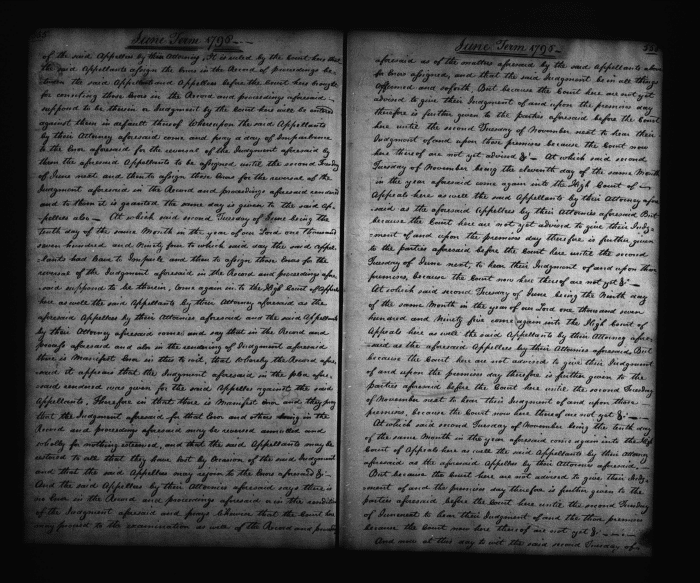 June Term 1798
of the said Appellees by their Attorney It is ruled by the Court here that
the said Appellants assign the errors in the Record and proceedings be
tween the said Appellants and Appellees before the Court here brought
for correcting those errors in the Record and proceedings aforesaid
suppos'd to be therein or Judgment by the Court here will be entered
against them in default thereof Whereupon the said Appellants
by their Attorney aforesaid come and pray a day of Imparlance
to the Court aforesaid for the reversal of the Judgment aforesaid by
them the aforesaid Appellants to be assigned until the second Tuesday
of June next and then to assign those Errors for the reversal of the
Judgment aforesaid in the Record and proceedings aforesaid
and to them it is granted the same day is given to the said Ap-
pellees also — At which said second Tuesday of June being the
tenth day of the same Month in the year of our Lord one thousand
seven hundred and Ninety five to which said day the said Appel
lants had leave to Imparle and then to assign those Errors for the
reversal of the Judgment aforesaid in the Record and proceedings afore
said supposed to be therein, come again into the High Court of Appeals
here as well the said Appellants by their Attorney aforesaid as the
aforesaid Appellees by their Attornies aforesaid and the said Appellants
by their Attorney aforesaid come and say that in the Record and
process aforesaid and also in the rendering of Judgment aforesaid
there is Manifest Error in this to wit, that whereby the Record afore
said it appears that the Judgment aforesaid in the plea afore
said rendered was given for the said Appellees against the said
Appellants, Therefore in that there is Manifest Error and they pray
that the Judgment aforesaid for that Error and others being in the
Record and proceedings aforesaid may be reversed annulled and
wholly for nothing esteemed, and that the said Appellants may be
restored to all that they have lost by Occasion of the said Judgment
and that the said Appellees may rejoin to the Errors aforesaid &c —
And the said Appellees by their Attornies aforesaid says there is
no Error in the Record and proceedings aforesaid or in the rendition
of the Judgment aforesaid and prays likewise that the Court here
may proceed to the examination as well of the Record and
June Term 1795
aforesaid as of the matters aforesaid by the said Appellants above
for Error assigned, and that the said Judgment be in all things
Affirmed and soforth. But because the Court here are not yet
advised to give their Judgment of and upon the premises day
therefore is further given to the parties aforesaid before the Court
here until the second Tuesday of November next to hear their
Judgment of and upon those premises because the Court now
here thereof are not yet advised &c — At which said second
Tuesday of November being the eleventh day of the same Month
in the year aforesaid come again into the High Court of
Appeals here as well the said Appellants by their Attorney afore
said as the aforesaid Appellees by their Attornies aforesaid But
because the Court here are not yet advised to give their Judg-
ment of and upon the premises day therefore is further given
to the parties aforesaid before the Court here until the second
Tuesday of June next, to hear their Judgment of and upon those
premises, because the Court now here thereof are not yet &c —
At which said second Tuesday of June being the Ninth day
of the same Month in the year of our Lord one thousand seven
hundred and Ninety five come again into the High Court of
Appeals here as well the said Appellants by their Attorney afore-
said as the aforesaid Appellees by their Attornies aforesaid. But
because the Court here are not advised to give their Judgment
of and upon the premises day therefore is further given to the
parties aforesaid before the Court here until the second Tuesday
of November next to hear their Judgment of and upon those
premises, because the Court now here thereof are not yet &c —
At which said second Tuesday of November being the tenth day
of the same Month in the year aforesaid come again into the High
Court of Appeals here as well the said Appellants by their Attorney
aforesaid as the aforesaid Appellees by their Attornies aforesaid.
But because the Court here are not advised to give their Judg-
ment of and upon the premises day therefore is further given to the
parties aforesaid before the Court here until the second Tuesday
of to hear their Judgment of and upon the those premises
because the Court now here thereof are not yet &c —
And now at this day to wit the said second Tuesday of